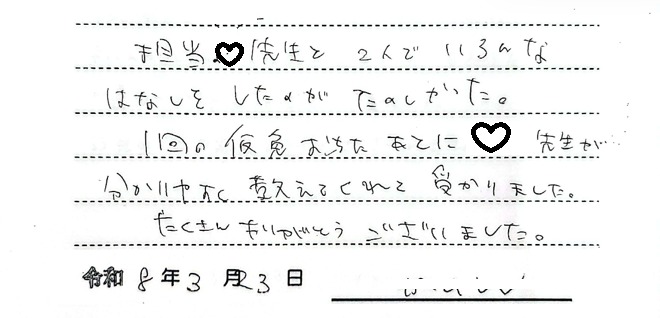 担当♡先生と 2人で いろんな
はなしを したのが たのしかった。
1回の仮免おちた あとに ♡ 先生が
分かりやすく 教えてくれて 受かりました。
たくさん ありがとう ございました。
令和 8年3月23日